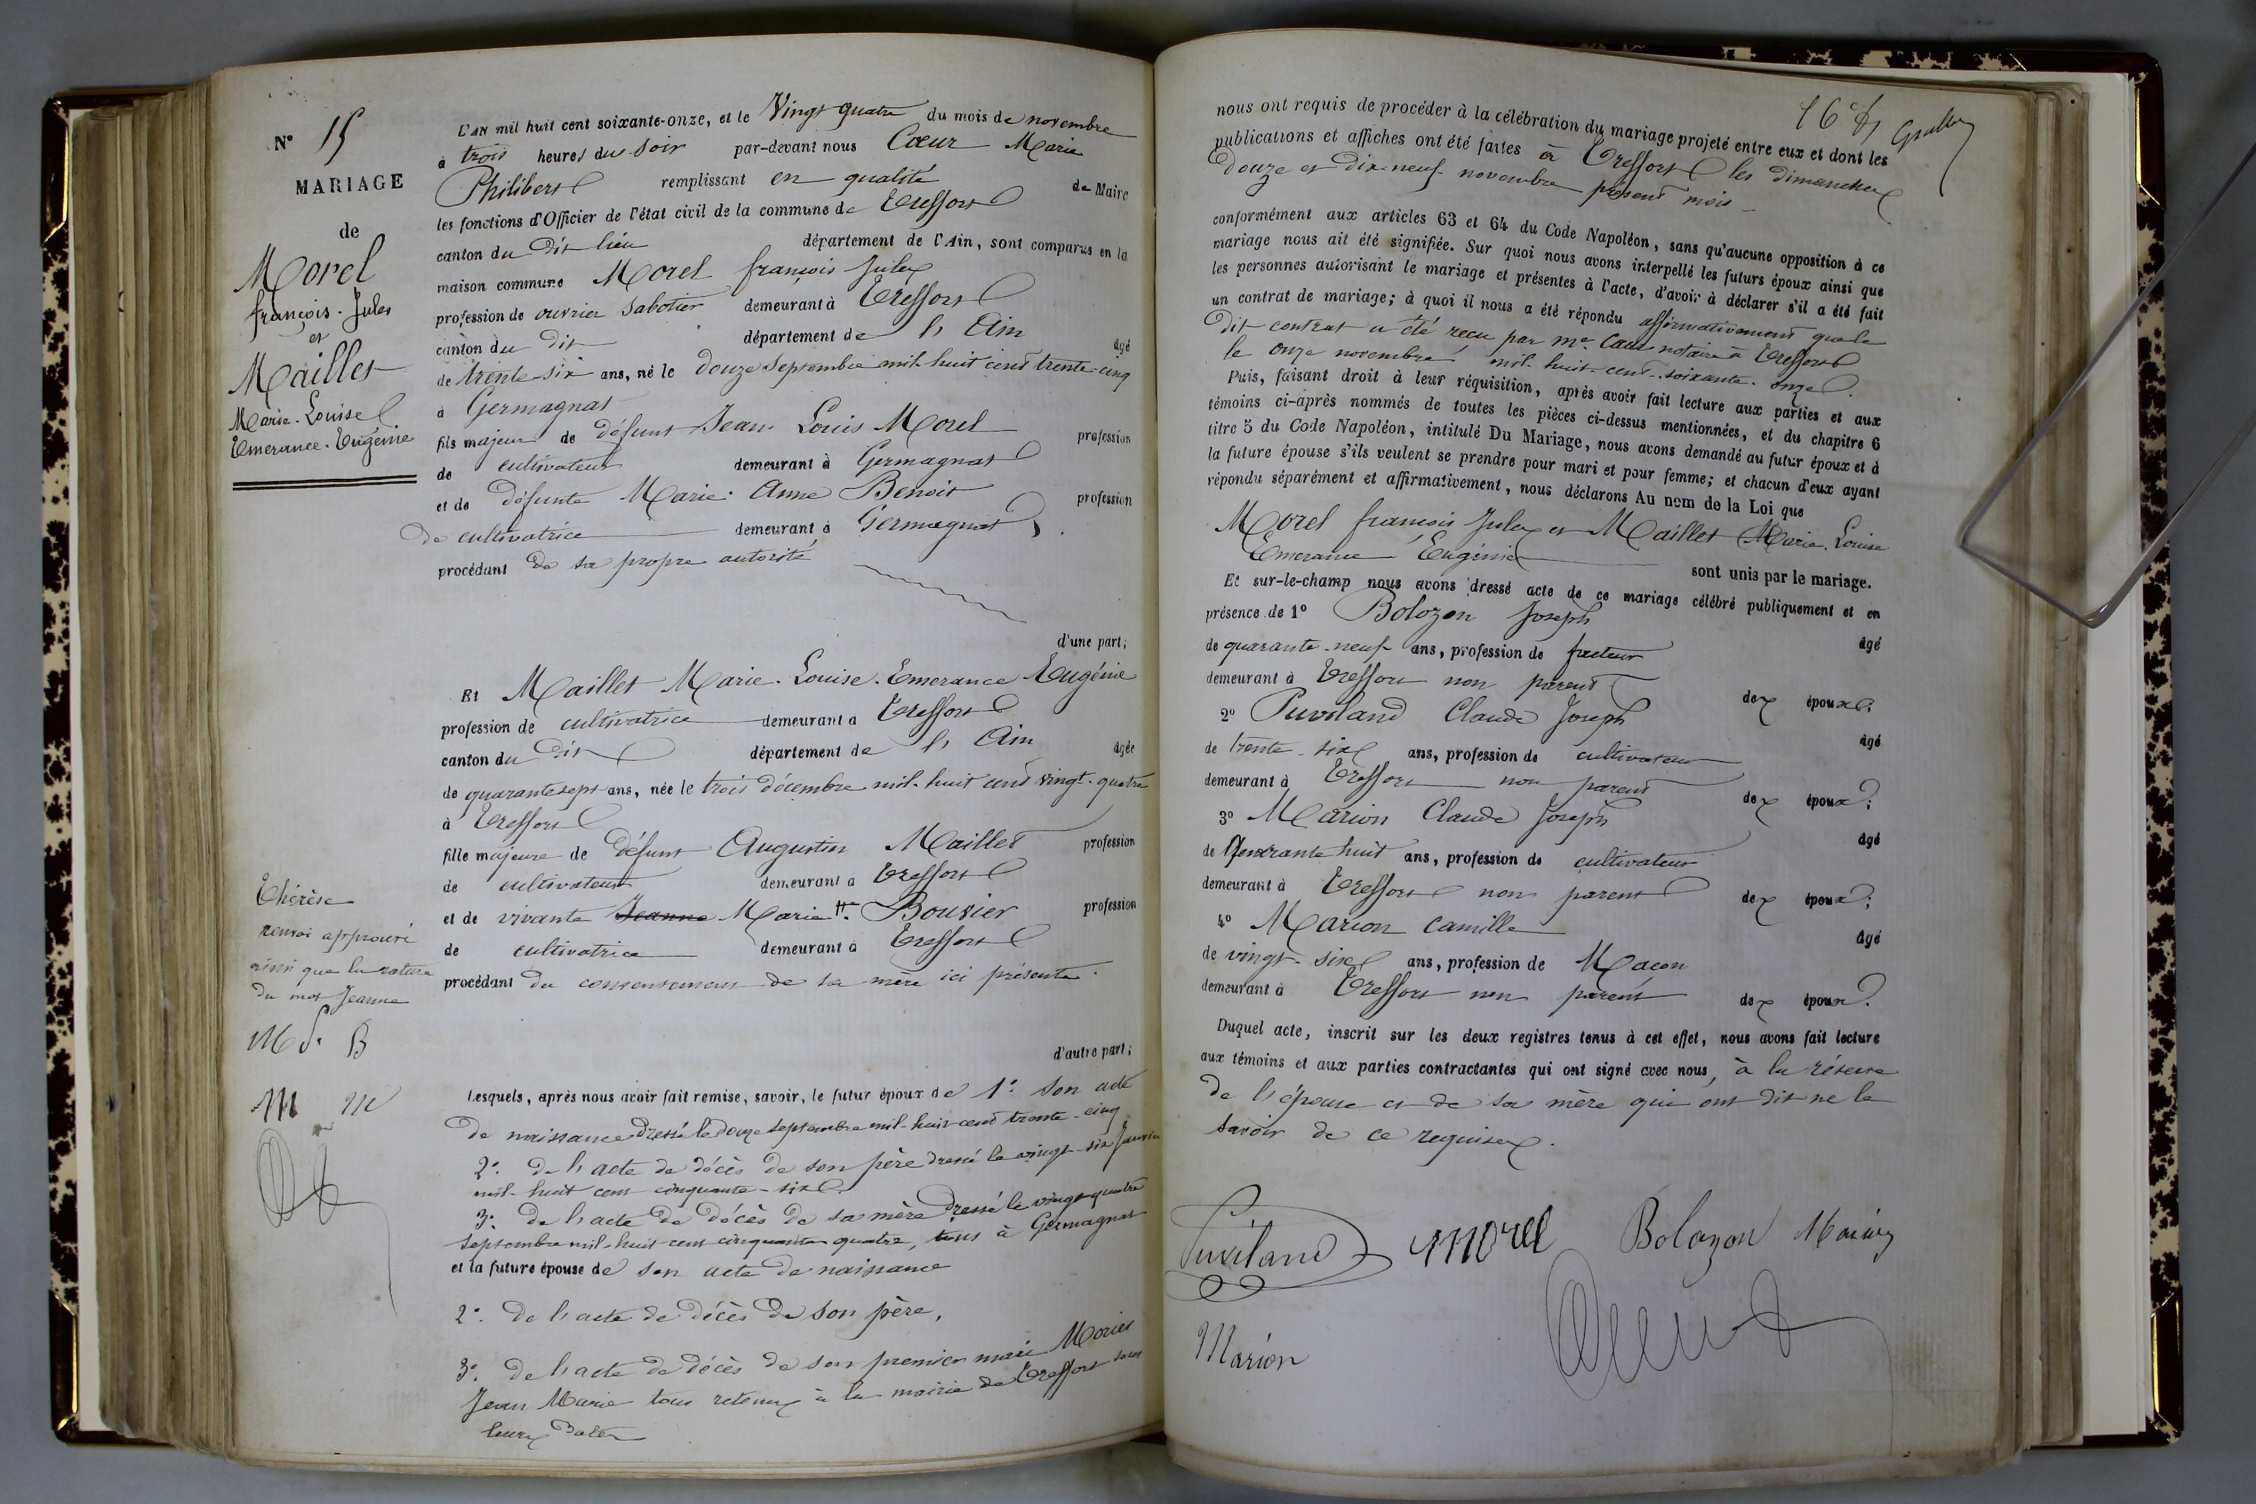 N° 15
MARIAGE
de
Morel
françois-Jules
et
Maillet
Marie-Louise
Emerance-Eugénie
L'AN mil huit cent soixante-onze, et le Vingt quatre du mois de novembre
à trois heures du soir par-devant nous Cœur Marie
Philibert remplissant en qualité de Maire
les fonctions d'Officier de l'état civil de la commune de Treffort
canton du dit lieu département de l'Ain, sont comparus en la
maison commune Morel françois Jules
profession de ouvrier Sabotier demeurant à Treffort
canton du dit département de l'Ain âgé
de trente-six ans, né le douze Septembre mil-huit cent trente-cinq
à Germagnat
fils majeur de défunt Jean Louis Morel profession
de cultivateur demeurant à Germagnat
et de défunte Marie-Anne Benoit profession
de cultivatrice demeurant à Germagnat
procédant de sa propre autorité
d'une part;
Et Maillet Marie-Louise-Emerance Eugénie
profession de cultivatrice demeurant à Treffort
canton du dit département de l'Ain âgée
de quarante sept ans, née le trois décembre mil-huit cent vingt-quatre
à Treffort
fille majeure de défunt Augustin Maillet profession
de cultivateur demeurant à Treffort
et de vivante Jeanne Marie # Bouvier profession
de cultivatrice demeurant à Treffort
procédant du consentement de sa mère ici présente.
Thérèse
renvoi approuvé
ainsi que la rature
du mot Jeanne
M J. B
M M
d'autre part;
Lesquels, après nous avoir fait remise, savoir, le futur époux de 1°. Son acte
de naissance dressé le douze septembre mil-huit-cent trente-cinq
2°. de l'acte de décès de son père dressé le vingt-six Janvier
mil-huit cent cinquante-six
3°. de l'acte de décès de sa mère dressé le vingt-quatre
septembre mil-huit-cent cinquante quatre, tous à Germagnat
et la future épouse de son acte de naissance
2°. de l'acte de décès de son père,
3°. de l'acte de décès de son premier mari Morier
Jean Marie tous retenus à la mairie de Treffort sous
leurs dates
16e f
nous ont requis de procéder à la célébration du mariage projeté entre eux et dont les
publications et affiches ont été faites à Treffort les dimanches
douze et dix-neuf novembre présent mois
conformément aux articles 63 et 64 du Code Napoléon, sans qu'aucune opposition à ce
mariage nous ait été signifiée. Sur quoi nous avons interpellé les futurs époux ainsi que
les personnes autorisant le mariage et présentes à l'acte, d'avoir à déclarer s'il a été fait
un contrat de mariage; à quoi il nous a été répondu affirmativement que le
dit contrat a été reçu par Me. Cœur notaire à Treffort
le onze novembre mil-huit-cent-soixante-onze.
Puis, faisant droit à leur réquisition, après avoir fait lecture aux parties et aux
témoins ci-après nommés de toutes les pièces ci-dessus mentionnées, et du chapitre 6
titre 5 du Code Napoléon, intitulé Du Mariage, nous avons demandé au futur époux et à
la future épouse s'ils veulent se prendre pour mari et pour femme; et chacun d'eux ayant
répondu séparément et affirmativement, nous déclarons Au nom de la Loi que
Morel françois Jules et Maillet Marie-Louise
Emerance Eugénie sont unis par le mariage.
Et sur-le-champ nous avons dressé acte de ce mariage célébré publiquement et en
présence de 1° Bolozon Joseph âgé
de quarante-neuf ans, profession de facteur
demeurant à Treffort non parent des époux;
2° Puviland Claude Joseph âgé
de trente-six ans, profession de cultivateur
demeurant à Treffort non parent des époux;
3° Marion Claude Joseph âgé
de Quarante huit ans, profession de cultivateur
demeurant à Treffort non parent des époux;
4° Marion Camille âgé
de vingt-six ans, profession de Maçon
demeurant à Treffort non parent des époux.
Duquel acte, inscrit sur les deux registres tenus à cet effet, nous avons fait lecture
aux témoins et aux parties contractantes qui ont signé avec nous, à la réserve
de l'épouse et de sa mère qui ont dit ne le
savoir de ce requises.
Puviland Morel Bolozon Marion
Marion